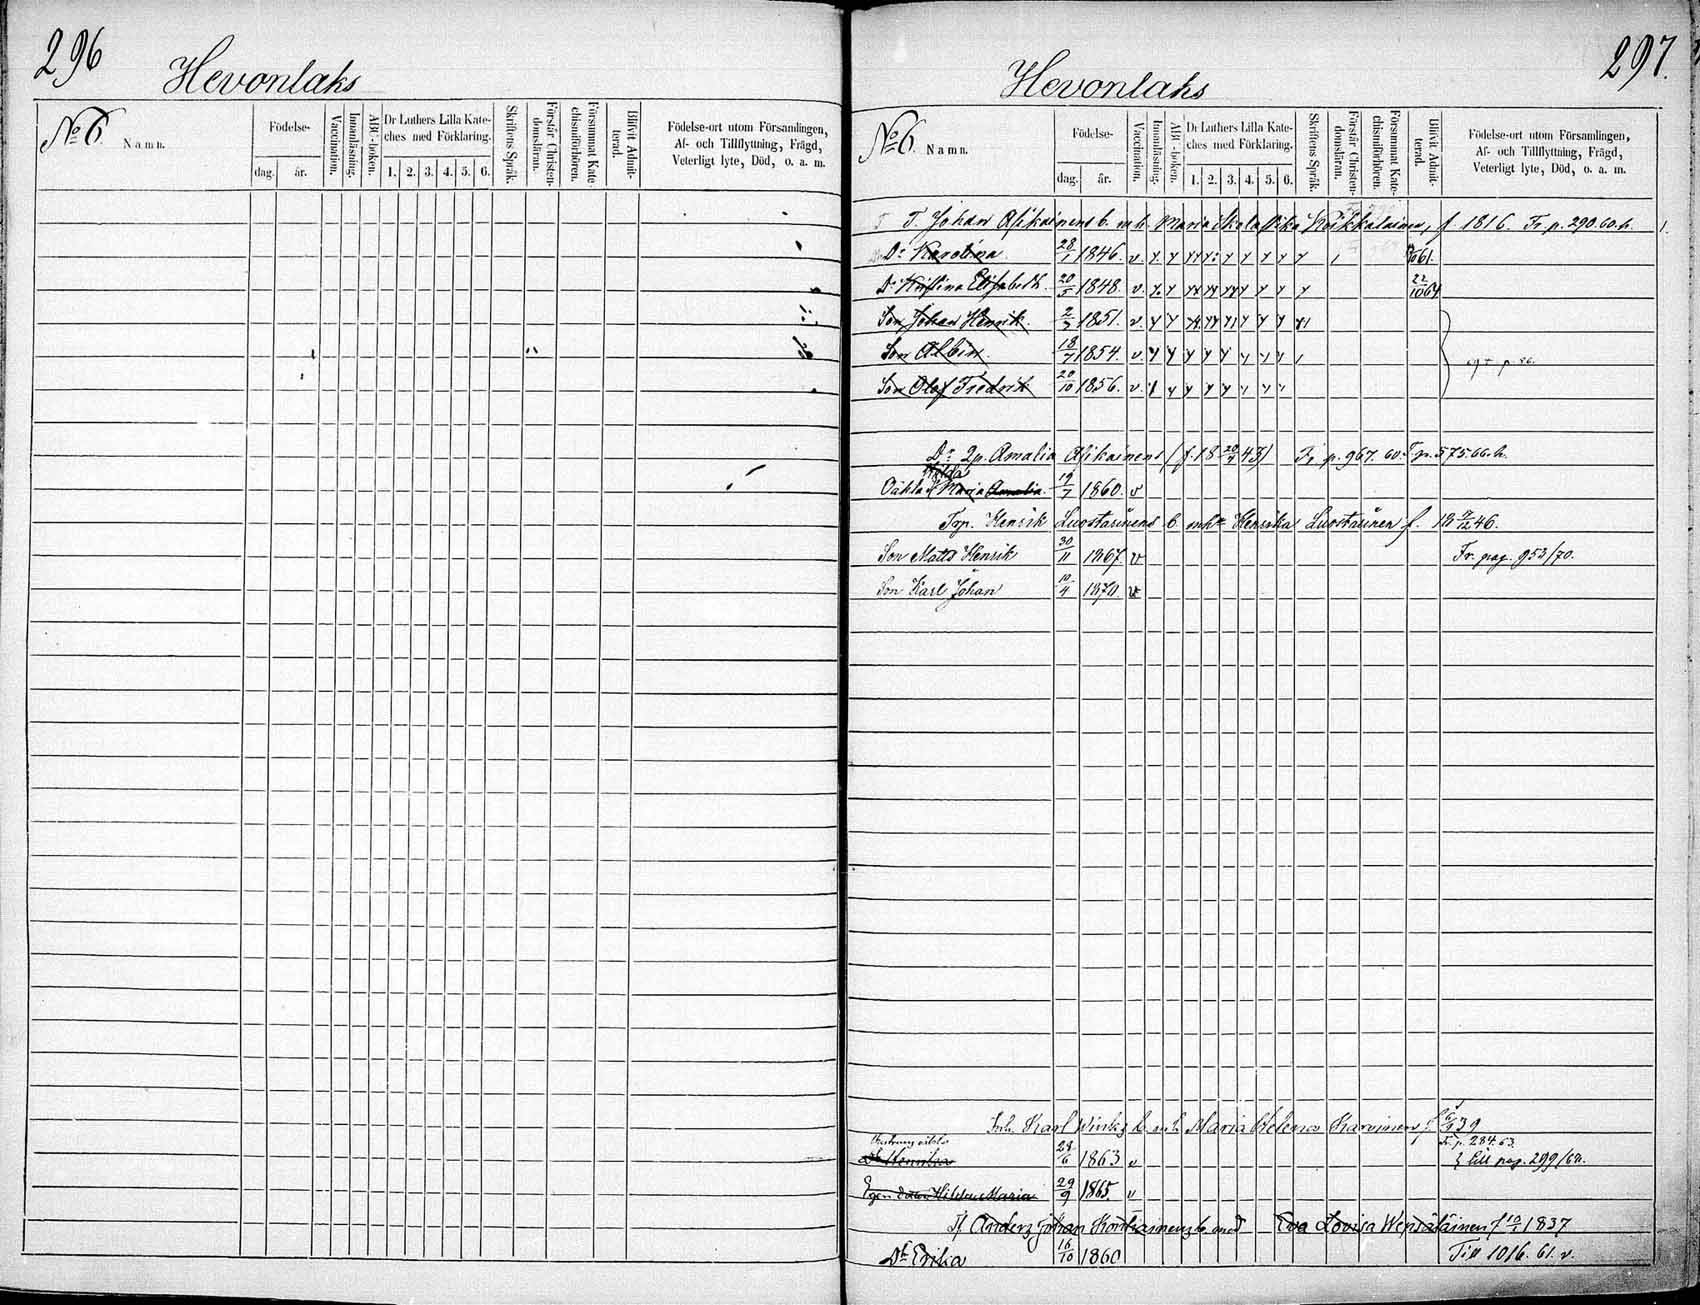 296
Hevonlaks
No 6.
Namn.
Födelse-
dag.
år.
Vaccination.
Innanläsning.
ABC-boken.
Dr Luthers Lilla Kate-
ches med Förklaring.
1. 2. 3. 4. 5. 6.
Skriftens Språk.
Förstår Christen-
domsläran.
Försummat Kate-
chismiförhören.
Blifvit Admit-
terad.
Födelse-ort utom Församlingen,
Af- och Tillflyttning, Frägd,
Veterligt lyte, Död, o. a. m.
297.
Hevonlaks
No 6.
Namn.
Födelse-
dag.
år.
Vaccination.
Innanläsning.
ABC-boken.
Dr Luthers Lilla Kate-
ches med Förklaring.
1. 2. 3. 4. 5. 6.
Skriftens Språk.
Förstår Christen-
domsläran.
Försummat Kate-
chismiförhören.
Blifvit Admit-
terad.
Födelse-ort utom Församlingen,
Af- och Tillflyttning, Frägd,
Veterligt lyte, Död, o. a. m.
T. Johan Asikainens b. m. h. Maria f. 1816. Fr p. 290. 60. h. 1.
Dr Karolina 28/1 1846. v. 61.
Dr Kristina Elisabeth. 20/5 1848. v. 22/10 64
Son Johan Henrik. 1851. v.
Son Albin. 18/7 1854. v.
Son Olof Fredrik 20/10 1856. v.
Dr 2p. Amalia Asikainens (f. 18 43) Fr p. 967. 60. T p. 575. 66. h.
Hilda
Oäkta Maria Amalia. 19/7 1860. v
Henrik Luostarinens b. m h Henrika Luostarinen f. 18 /12 46.
Son Matts Henrik 30/11 1867. v Fr. pag. 953/70.
Son Karl Johan 10/4 1870. v
Inh. Karl b. m h. Maria Helena f. 39
Fr. p. 284. 63.
Dr Henrika 28/6 1863 v till pag. 299/68.
Egen dotter Hilda Maria 29/9 1865 v
Anders Johan b. med Eva Lovisa f. 10/1 1837
Dr Erika 16/10 1860 Till 1016. 61. v.